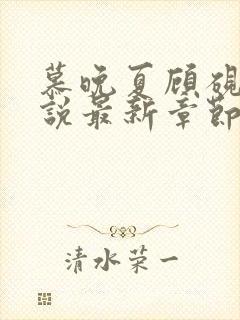 慕晚夏顾砚
說最新章節
清水荣一